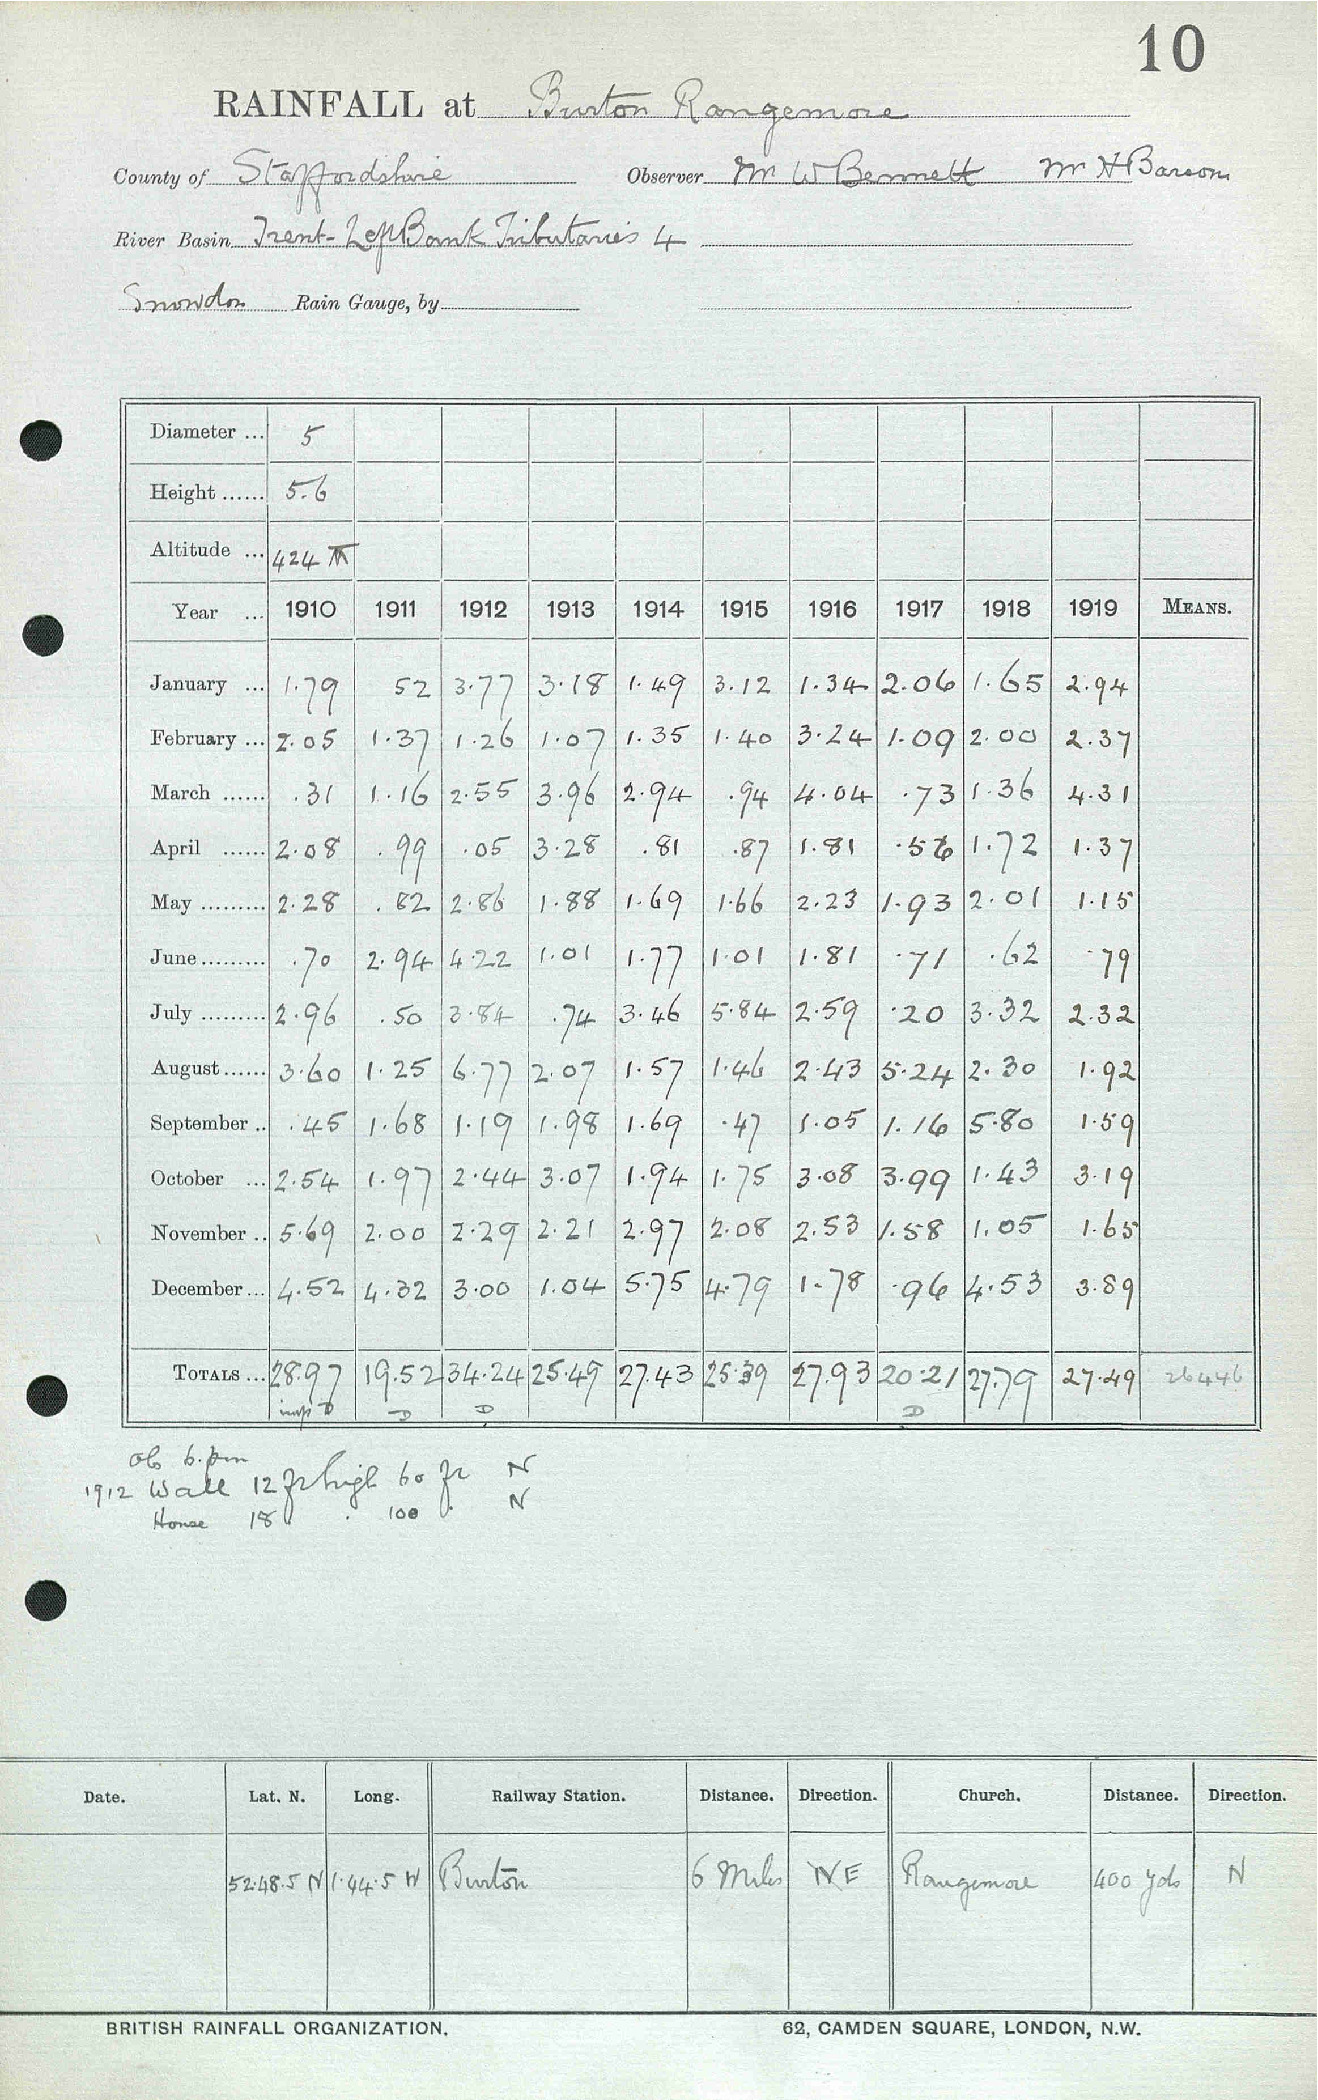 10
RAINFALL at Burton Rangemore
County of Staffordshire Observer Mr W Bennett Mr H Barsom
River Basin Trent-Left Bank Tributaries 4
Snowdon Rain Gauge, by
Diameter ... 5
Height ...... 5.6
Altitude ... 424
Year ... 1910 1911 1912 1913 1914 1915 1916 1917 1918 1919 MEANS.
January ... 1.79 52 3.77 3.18 1.49 3.12 1.34 2.06 1.65 2.94
February ... 2.05 1.37 1.26 1.07 1.35 1.40 3.24 1.09 2.00 2.37
March ...... .31 1.16 2.55 3.96 2.94 .94 4.04 .73 1.36 4.31
April ...... 2.08 .99 .05 3.28 .81 .87 1.81 .56 1.72 1.37
May ......... 2.28 .82 2.86 1.88 1.69 1.66 2.23 1.93 2.01 1.15
June ......... .70 2.94 4.22 1.01 1.77 1.01 1.81 .71 .62 .79
July ......... 2.96 .50 3.84 .74 3.46 5.84 2.59 .20 3.32 2.32
August ...... 3.60 1.25 6.77 2.07 1.57 1.46 2.43 5.24 2.30 1.92
September .. .45 1.68 1.19 1.98 1.69 .47 1.05 1.16 5.80 1.59
October ... 2.54 1.97 2.44 3.07 1.94 1.75 3.08 3.99 1.43 3.19
November .. 5.69 2.00 2.29 2.21 2.97 2.08 2.53 1.58 1.05 1.65
December ... 4.52 4.32 3.00 1.04 5.75 4.79 1.78 .96 4.53 3.89
TOTALS ... 28.97 19.52 34.24 25.49 27.43 25.39 27.93 20.21 27.79 27.49 26446
D D D D
ob 6.pm
1912 Wall 12 ft high 60 ft N
House 18 100 N
Date. Lat. N. Long. Railway Station. Distance. Direction. Church. Distance. Direction.
52.48.5 N 1.44.5 W Burton 6 Miles NE Rangemore 400 yds N
BRITISH RAINFALL ORGANIZATION. 62, CAMDEN SQUARE, LONDON, N.W.